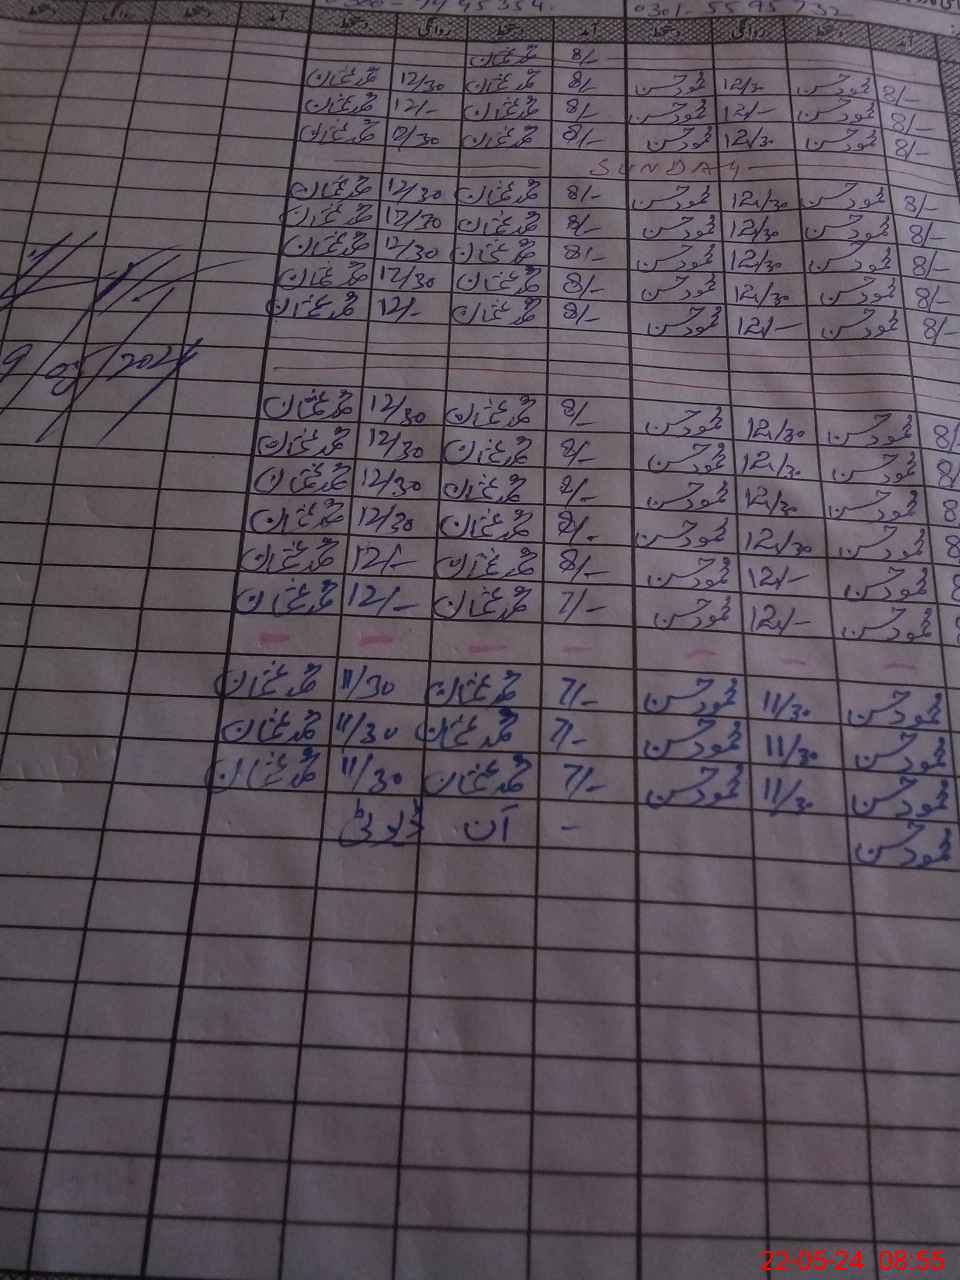 0301-5595732
آمد دستخط روانگی دستخط آمد دستخط روانگی دستخط آمد دستخط روانگی دستخط
8/- محمد عثمان
8/- محمود حسن 12/30 محمود حسن 8/- محمد عثمان 12/30 محمد عثمان
8/- محمود حسن 12/- محمود حسن 8/- محمد عثمان 12/- محمد عثمان
8/- محمود حسن 12/30 محمود حسن 8/- محمد عثمان 12/30 محمد عثمان
SUNDAY
8/- محمود حسن 12/30 محمود حسن 8/- محمد عثمان 12/30 محمد عثمان
8/- محمود حسن 12/30 محمود حسن 8/- محمد عثمان 12/30 محمد عثمان
8/- محمود حسن 12/30 محمود حسن 8/- محمد عثمان 12/30 محمد عثمان
8/- محمود حسن 12/30 محمود حسن 8/- محمد عثمان 12/30 محمد عثمان
8/- محمود حسن 12/- محمود حسن 8/- محمد عثمان 12/- محمد عثمان
2024
8/- محمود حسن 12/30 محمود حسن 8/- محمد عثمان 12/30 محمد عثمان
8/ محمود حسن 12/30 محمود حسن 8/- محمد عثمان 12/30 محمد عثمان
8 محمود حسن 12/30 محمود حسن 8/- محمد عثمان 12/30 محمد عثمان
8 محمود حسن 12/30 محمود حسن 8/- محمد عثمان 12/30 محمد عثمان
8 محمود حسن 12/- محمود حسن 8/- محمد عثمان 12/- محمد عثمان
محمود حسن 12/- محمود حسن 7/- محمد عثمان 12/- محمد عثمان
محمود حسن 11/30 محمود حسن 7/- محمد عثمان 11/30 محمد عثمان
محمود حسن 11/30 محمود حسن 7/- محمد عثمان 11/30 محمد عثمان
محمود حسن 11/30 محمود حسن 7/- محمد عثمان 11/30 محمد عثمان
محمود حسن - آن ڈیوٹی
22-05-24 08:55